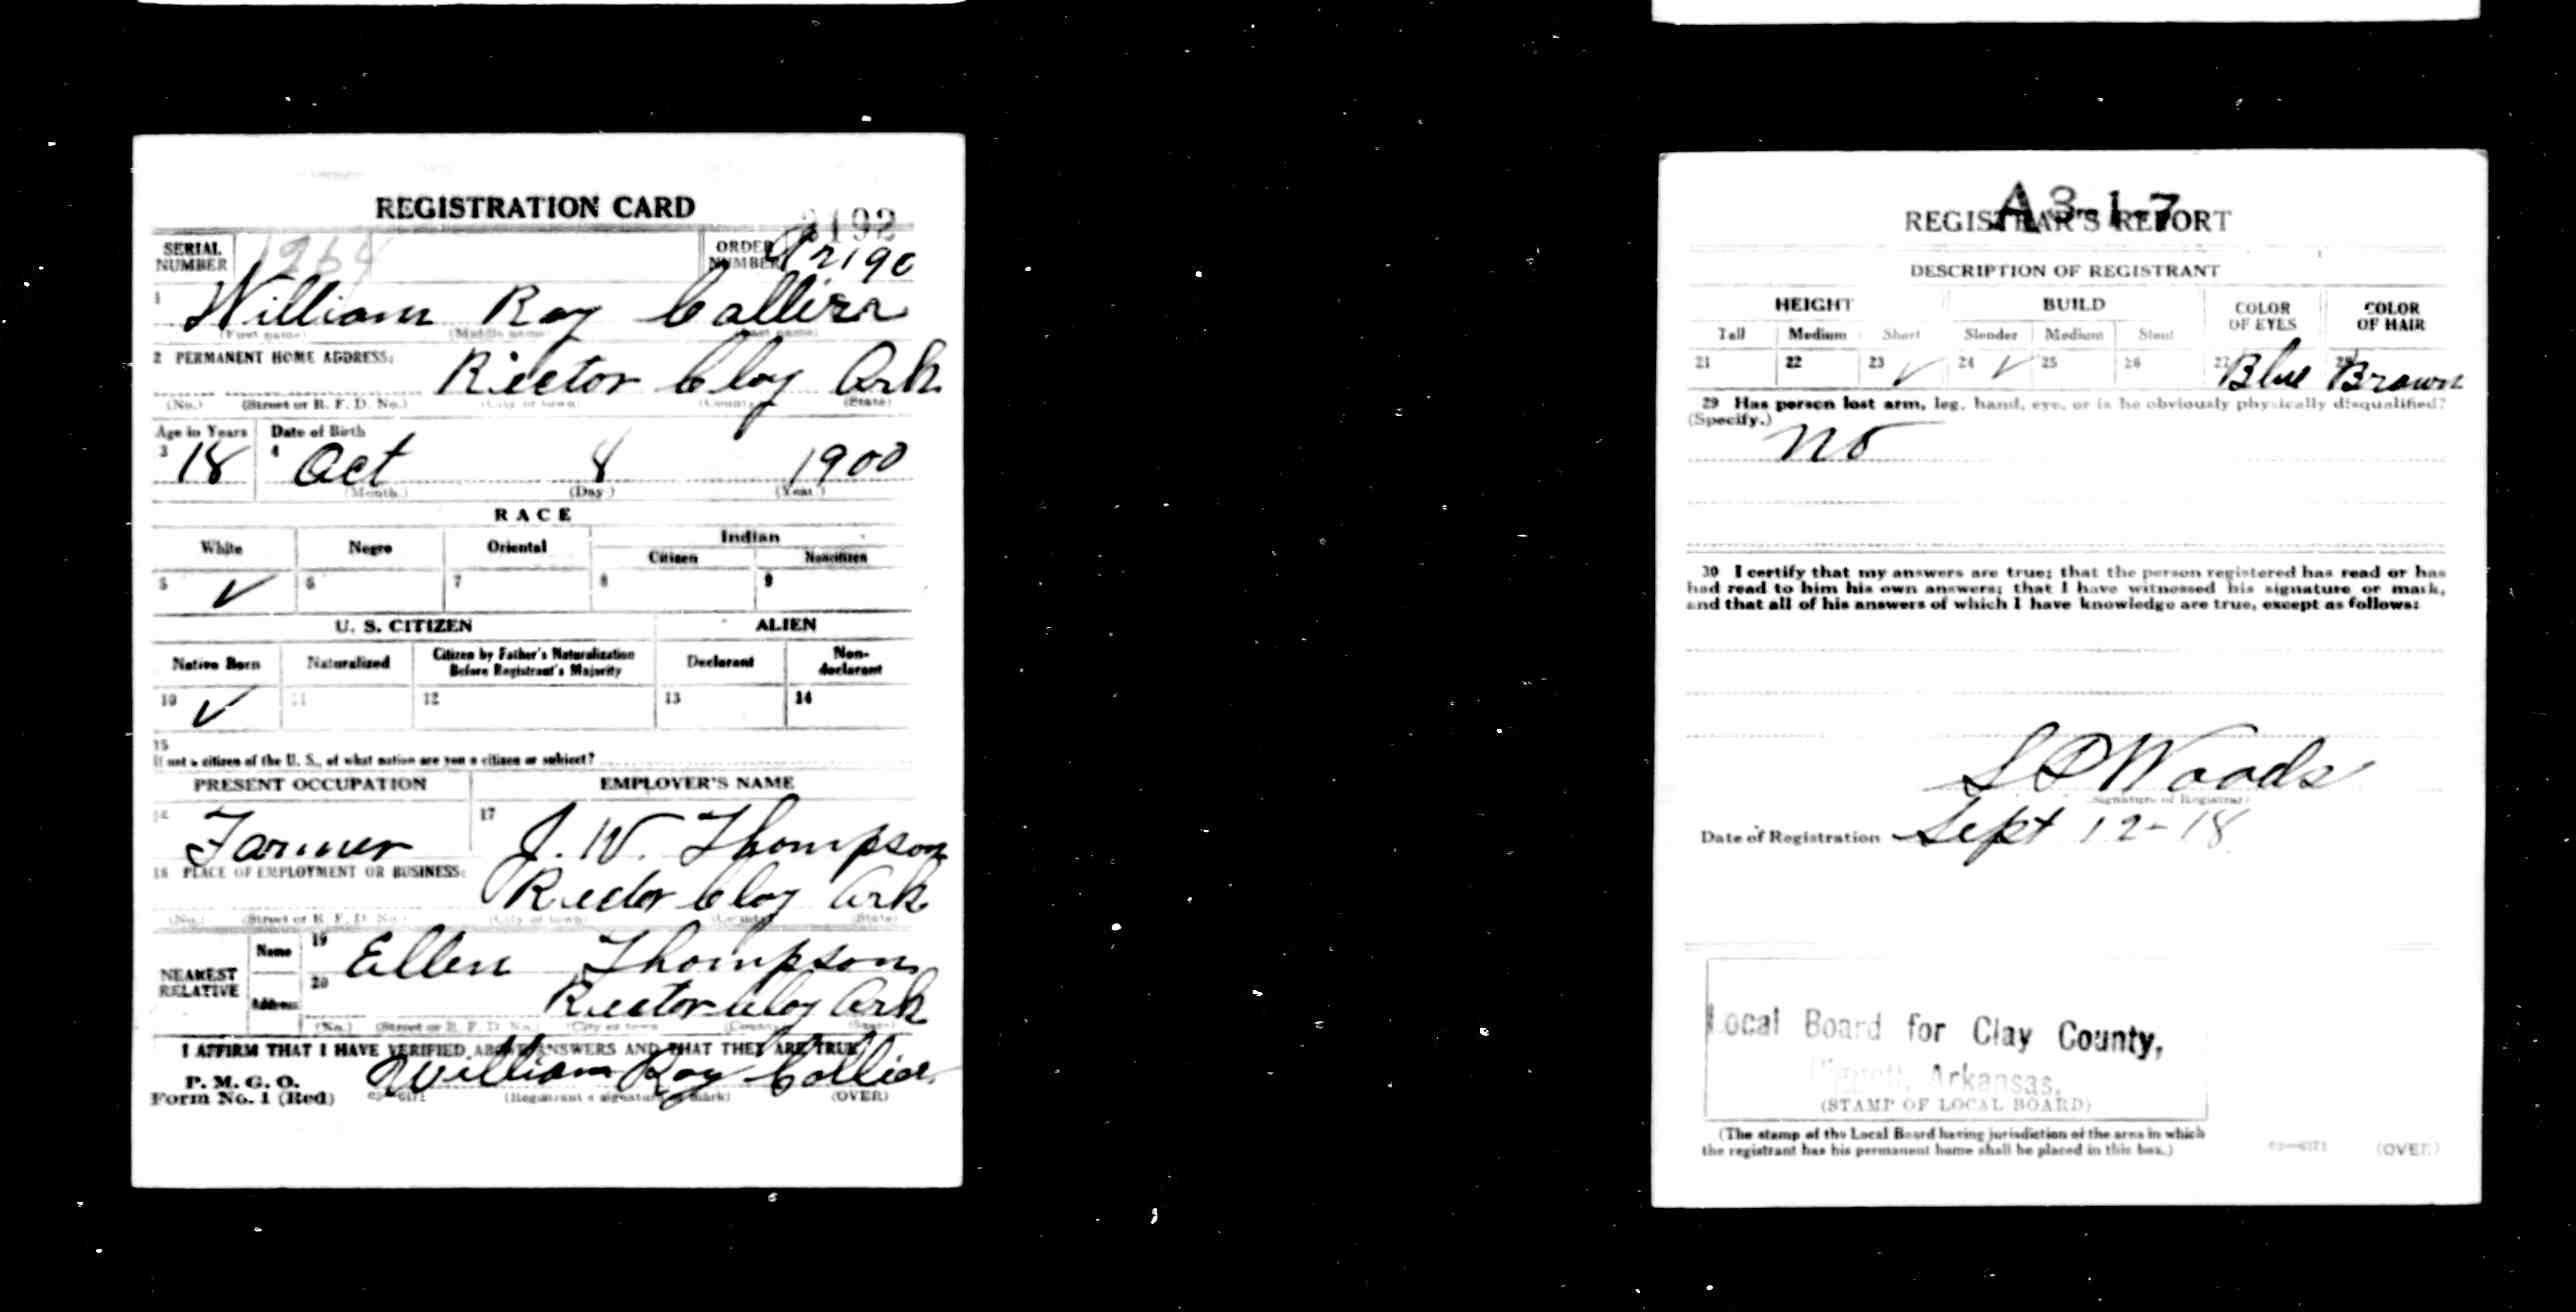 REGISTRATION CARD
SERIAL NUMBER 1264 ORDER NUMBER
1 William Ray Collier
(First name) (Middle name) (Last name)
2 PERMANENT HOME ADDRESS:
Rector Clay Ark
(No.) (Street or R. F. D. No.) (City or town) (County) (State)
Age in Years Date of Birth
3 18 4 Oct 8 1900
(Month.) (Day.) (Year.)
RACE
White Negro Oriental Indian
Citizen Noncitizen
5 ✓ 6 7 8 9
U. S. CITIZEN ALIEN
Native Born Naturalized Citizen by Father's Naturalization Before Registrant's Majority Declarant Non-declarant
10 ✓ 11 12 13 14
15
If not a citizen of the U. S., of what nation are you a citizen or subject?
PRESENT OCCUPATION EMPLOYER'S NAME
16 Farmer 17 J. W. Thompson
18 PLACE OF EMPLOYMENT OR BUSINESS:
Rector Clay Ark
(No.) (Street or R. F. D. No.) (City or town) (County) (State)
NEAREST RELATIVE Name 19 Ellen Thompson
Address 20 Rector Clay Ark
(No.) (Street or R. F. D. No.) (City or town) (County) (State)
I AFFIRM THAT I HAVE VERIFIED ABOVE ANSWERS AND THAT THEY ARE TRUE
P. M. G. O.
Form No. 1 (Red) William Ray Collier
03—6171 (Registrant's signature or mark) (OVER)
A3-1-7
REGISTRAR'S REPORT
DESCRIPTION OF REGISTRANT
HEIGHT BUILD COLOR OF EYES COLOR OF HAIR
Tall Medium Short Slender Medium Stout
21 22 23 ✓ 24 ✓ 25 26 27 Blue 28 Brown
29 Has person lost arm, leg, hand, eye, or is he obviously physically disqualified?
(Specify.)
No
30 I certify that my answers are true; that the person registered has read or has
had read to him his own answers; that I have witnessed his signature or mark,
and that all of his answers of which I have knowledge are true, except as follows:
Woods
(Signature of Registrar)
Date of Registration Sept 12-18
Local Board for Clay County,
Piggott, Arkansas.
(STAMP OF LOCAL BOARD)
(The stamp of the Local Board having jurisdiction of the area in which
the registrant has his permanent home shall be placed in this box.)
03—6171 (OVER)